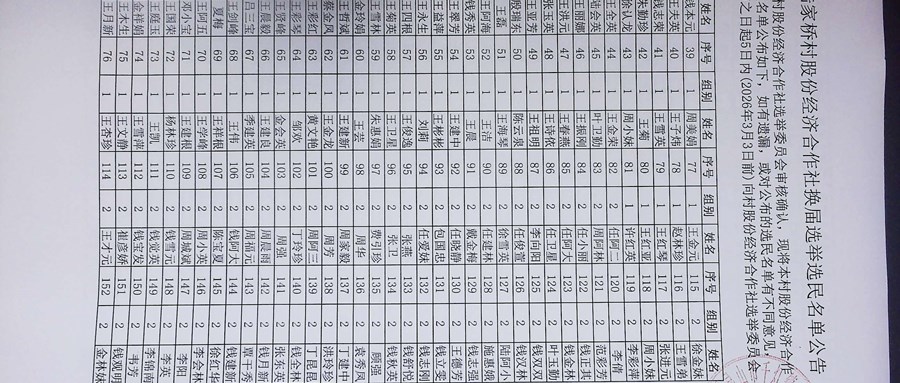 家桥村股份经济合作社换届选举选民名单公告
村股份经济合作社选举委员会审核确认，现将本村股份经济合作
名单公布如下，如有遗漏，或对公布的选民名单有不同意见
之日起5日内(2026年3月3日前)向村股份经济合作社选举委员会
姓名 序号 组别 姓名 序号 组别 姓名 序号 组别 姓名
钱本元 39 1 周美娟 77 1 王金元 115 2 徐金妹
王夫英 40 1 王子炜 78 1 赵林珍 116 2 王雪弟
钱志荣 41 1 王雪英 79 1 王红琴 117 2 张进元
朱勤珍 42 1 王菊 80 1 王红亚 118 2 周小妹
徐认龙 43 1 周小妹 81 1 许红英 119 2 李彩萍
王金英 44 1 王金荣 82 2 任阿二 120 2 李倩
陆会英 45 1 叶卫勤 83 2 周阿林 121 2 范彩芳
王丽娜 46 1 王振刚 84 2 任小丽 122 2 钱正其
王洪元 47 1 王春燕 85 2 任阿大 123 2 钱金林
张玉英 48 1 王诗依 86 2 任卫星 124 2 叶玉勤
王亚芳 49 1 王祖明 87 2 李向阳 125 2 钱双双
殷瑞东 50 1 陈云泉 88 2 任俊萱 126 2 钱汉林
王磊 51 1 王海琴 89 2 徐雪英 127 2 陆阿小
王阿海 52 1 王洁 90 2 任建林 128 2 施惠娥
钱秀英 53 1 王晨 91 2 戴金梅 129 2 钱志强
王翠芳 54 1 王建中 92 2 任晓静 130 2 王德芳
王益萍 55 1 王彬彬 93 2 包国忠 131 2 钱立雯
王永生 56 1 刘莉 94 2 任爱妹 132 2 钱志刚
王四根 57 1 王俊逸 95 2 张燕 133 2 钱舒悦
王菊英 58 1 王卫星 96 2 张卫 134 2 钱秋英
王雪林 59 1 朱惠娟 97 2 费引珍 135 2 顾强
金玲娟 60 1 王芸 98 2 周华 136 2 袁秀凤
王哲斌 61 1 王建新 99 2 周家毅 137 2 丁建中
蔡金凤 62 1 王金龙 100 2 周芳 138 2 洪玲珍
王彩红 63 1 黄文艳 101 2 周阿三 139 2 丁昆昆
王彩琴 64 1 邹欢 102 2 丁玲珍 140 2 钱全林
王贤峰 65 1 金会英 103 2 周强 141 2 张东英
王晨毅 66 1 王建良 104 2 周晨雨 142 2 钱月新
吕三宝 67 1 季建英 105 2 周福元 143 2 覃干秀
王剑峰 68 1 王伟 106 2 钱阿大 144 2 钱建新
夏梅 69 1 王祥根 107 2 陈宝夏 145 2 徐红华
王阿五 70 1 王学峰 108 2 周小英 146 2 李会林
邓小宝 71 1 王建根 109 2 周城斌 147 2 李阳
王国荣 72 1 杨林珍 110 2 钱雪元 148 2 李英
王庭玉 73 1 王凯 111 2 钱觉英 149 2 李锦南
金桂娟 74 1 王雪萍 112 2 钱宝发 150 2 韦芳
王木生 75 1 王文静 113 2 崔彦娇 151 2 钱观明
王月新 76 1 王杏珍 114 2 王才元 152 2 金林妹